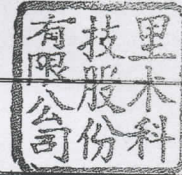 里木科
技股份
有限公司